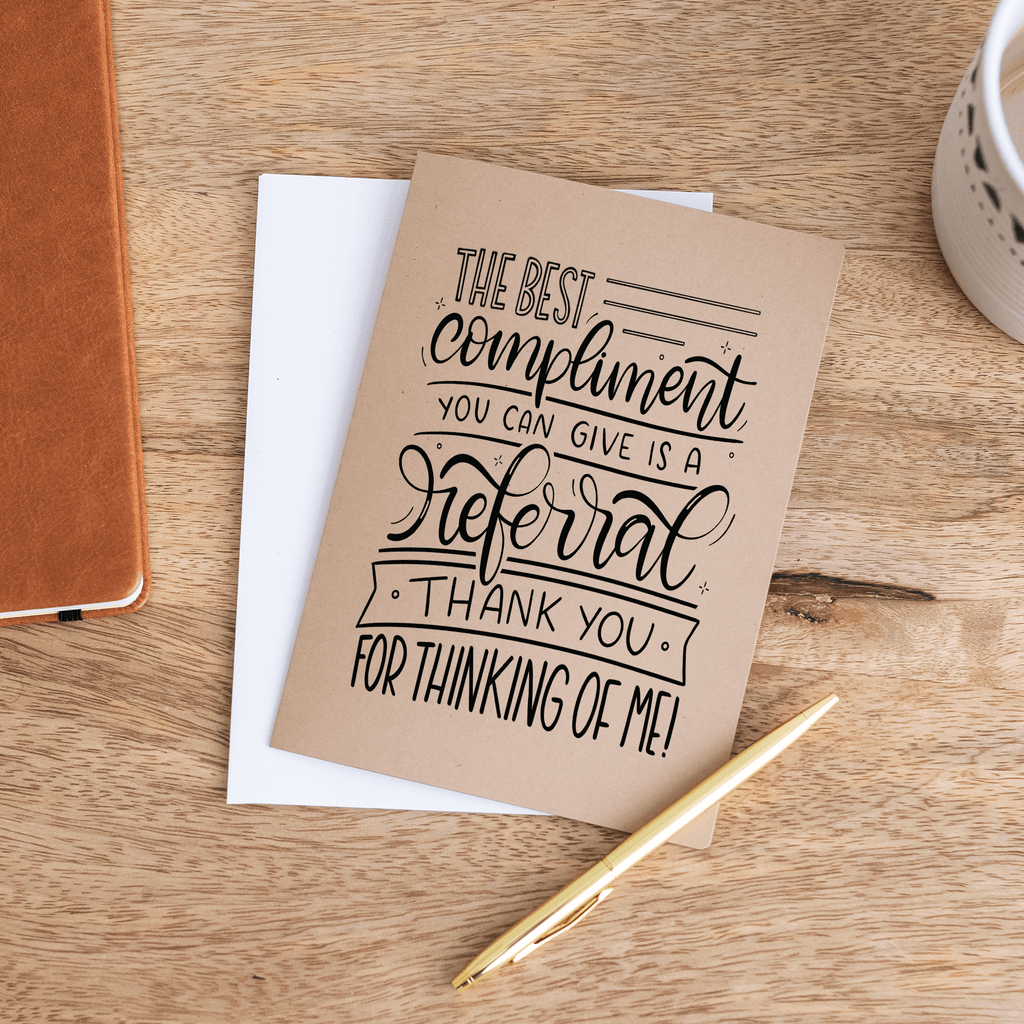 THE BEST
compliment
YOU CAN GIVE IS A
referral
THANK YOU
FOR THINKING OF ME!